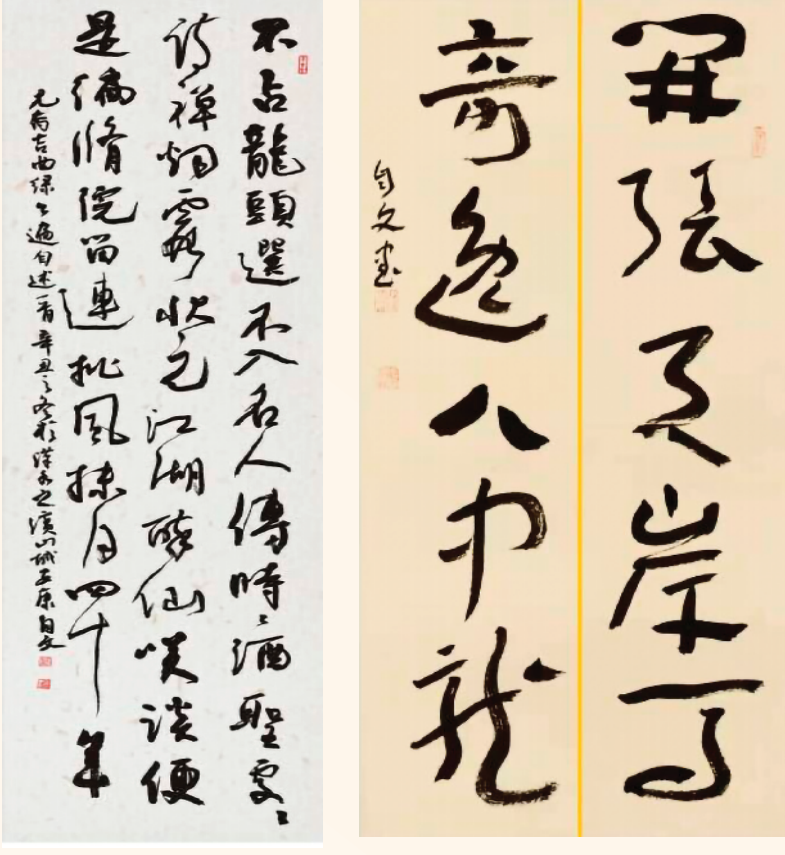 不占龍頭選不入名人傳時〻酒聖處〻
詩禪烟霞狀元江湖醉仙笑談便
是編脩院留連批風抹月四十年
元喬吉曲绿幺遍自述一首辛丑之冬於漢水之濱山城自文
開張天岸馬
奇逸人中龍
自文書